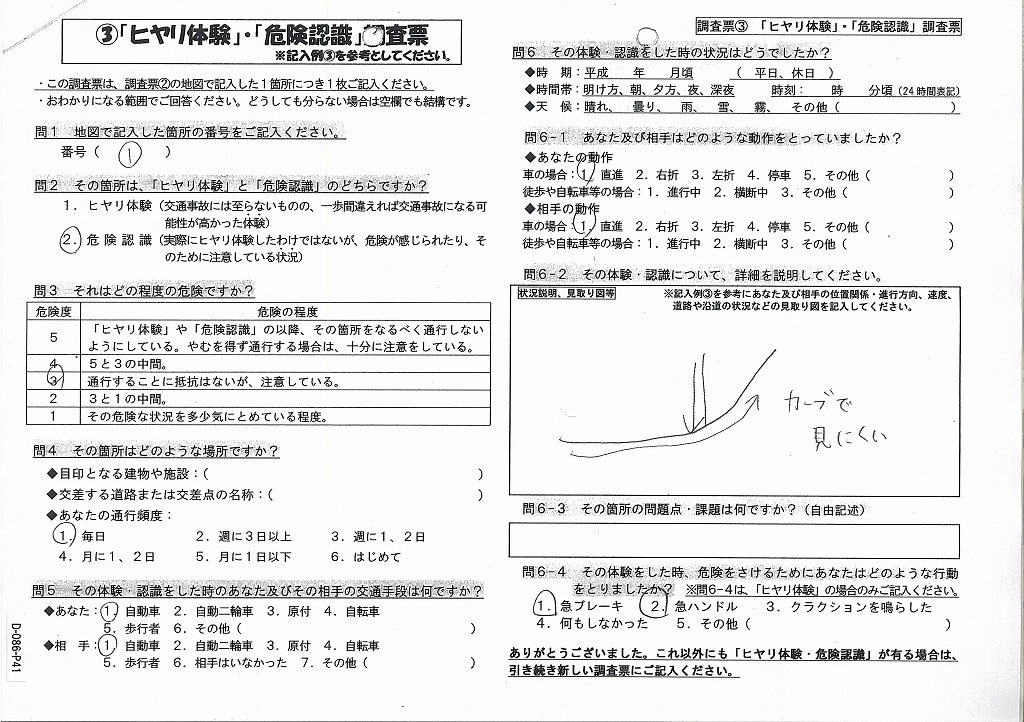 ③「ヒヤリ体験」・「危険認識」調査票
※記入例③を参考としてください。
・この調査票は、調査票②の地図で記入した1箇所につき1枚ご記入ください。
・おわかりになる範囲でご回答ください。どうしても分らない場合は空欄でも結構です。
問1 地図で記入した箇所の番号をご記入ください。
番号（ 1 ）
問2 その箇所は、「ヒヤリ体験」と「危険認識」のどちらですか？
1．ヒヤリ体験（交通事故には至らないものの、一歩間違えれば交通事故になる可
能性が高かった体験）
2．危険認識（実際にヒヤリ体験したわけではないが、危険が感じられたり、そ
のために注意している状況）
問3 それはどの程度の危険ですか？
危険度 危険の程度
5 「ヒヤリ体験」や「危険認識」の以降、その箇所をなるべく通行しない
ようにしている。やむを得ず通行する場合は、十分に注意をしている。
4 5と3の中間。
3 通行することに抵抗はないが、注意している。
2 3と1の中間。
1 その危険な状況を多少気にとめている程度。
問4 その箇所はどのような場所ですか？
◆目印となる建物や施設：（ ）
◆交差する道路または交差点の名称：（ ）
◆あなたの通行頻度：
1．毎日 2．週に3日以上 3．週に1、2日
4．月に1、2日 5．月に1日以下 6．はじめて
問5 その体験・認識をした時のあなた及びその相手の交通手段は何ですか？
◆あなた：1．自動車 2．自動二輪車 3．原付 4．自転車
5．歩行者 6．その他（ ）
◆相 手：1．自動車 2．自動二輪車 3．原付 4．自転車
5．歩行者 6．相手はいなかった 7．その他（ ）
D-086-P41
調査票③ 「ヒヤリ体験」・「危険認識」調査票
問6 その体験・認識をした時の状況はどうでしたか？
◆時 期：平成 年 月頃 （ 平日、休日 ）
◆時間帯：明け方、朝、夕方、夜、深夜 時刻： 時 分頃（24時間表記）
◆天 候：晴れ、 曇り、 雨、 雪、 霧、 その他（ ）
問6－1 あなた及び相手はどのような動作をとっていましたか？
◆あなたの動作
車の場合：1．直進 2．右折 3．左折 4．停車 5．その他（ ）
徒歩や自転車等の場合：1．進行中 2．横断中 3．その他（ ）
◆相手の動作
車の場合：1．直進 2．右折 3．左折 4．停車 5．その他（ ）
徒歩や自転車等の場合：1．進行中 2．横断中 3．その他（ ）
問6－2 その体験・認識について、詳細を説明してください。
状況説明、見取り図等
※記入例③を参考にあなた及び相手の位置関係・進行方向、速度、
道路や沿道の状況などの見取り図を記入してください。
カーブで
見にくい
問6－3 その箇所の問題点・課題は何ですか？（自由記述）
問6－4 その体験をした時、危険をさけるためにあなたはどのような行動
をとりましたか？ ※問6－4は、「ヒヤリ体験」の場合のみご記入ください。
1．急ブレーキ 2．急ハンドル 3．クラクションを鳴らした
4．何もしなかった 5．その他（ ）
ありがとうございました。これ以外にも「ヒヤリ体験・危険認識」が有る場合は、
引き続き新しい調査票にご記入ください。